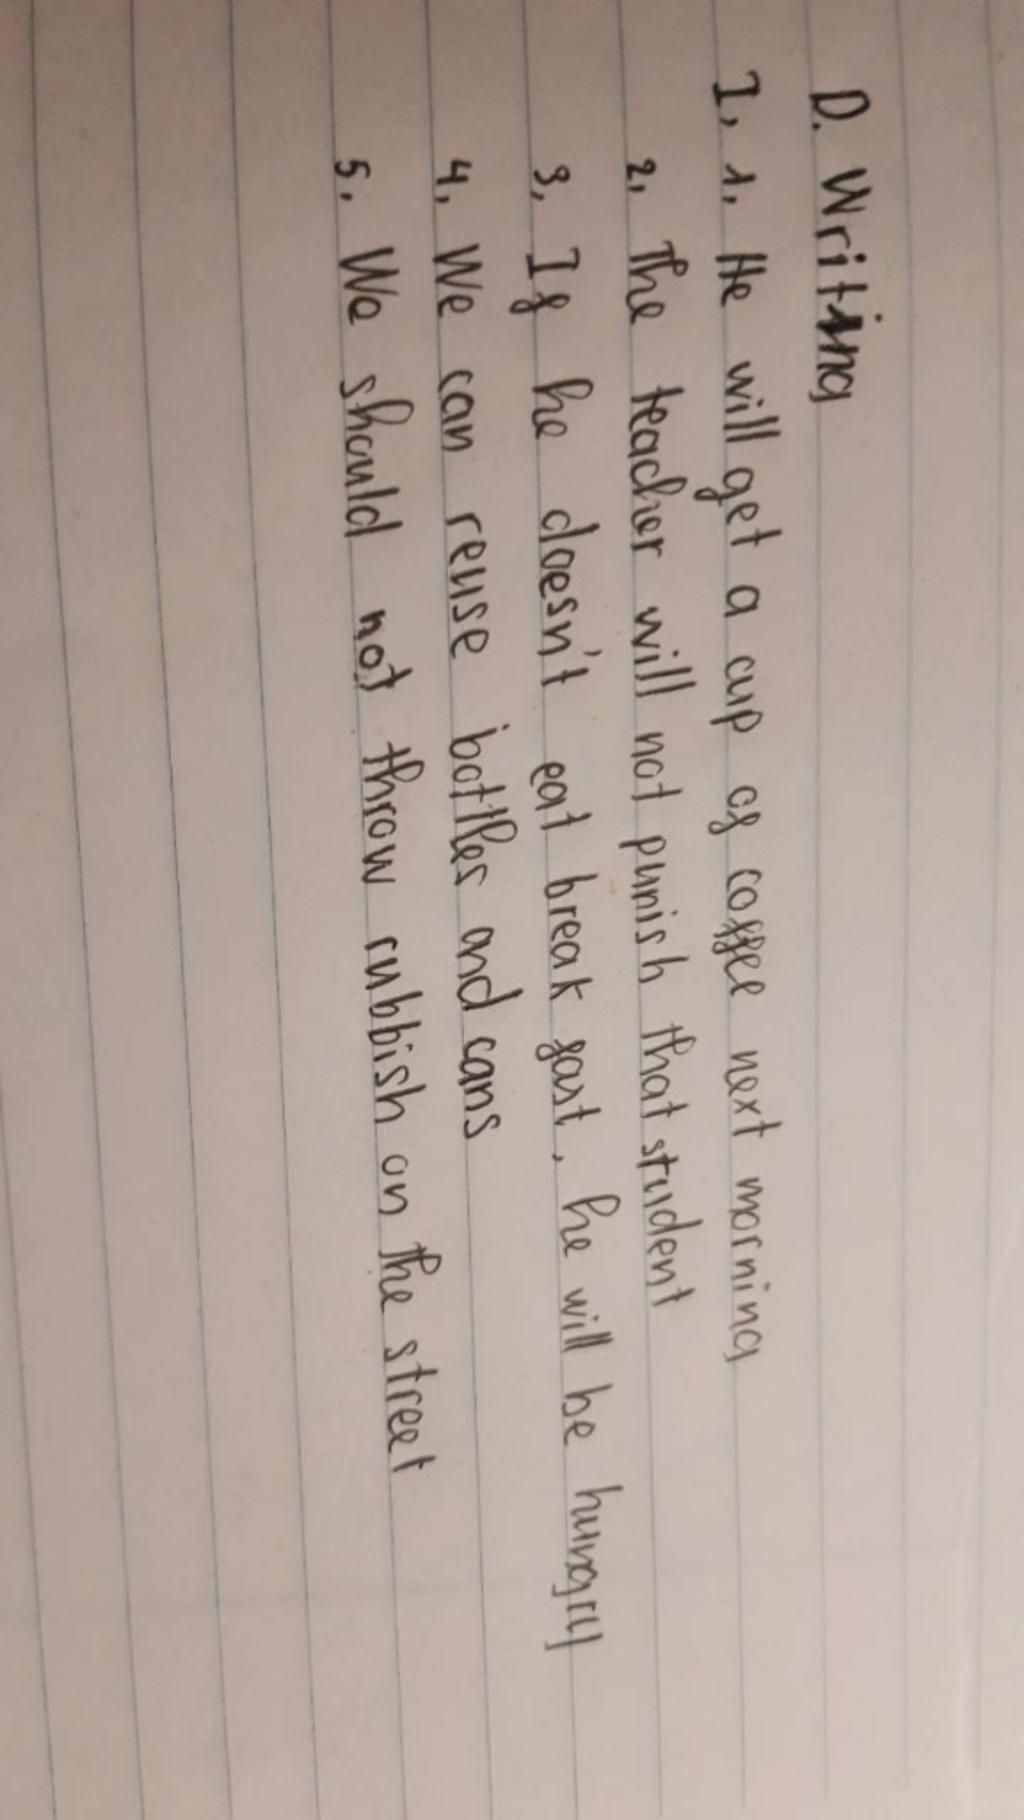 D. Writing
I, 1, He will get a cup of coffee next morning
2, The teacher will not punish that student
3, If he doesn't eat break fast, he will be hungry
4, We can reuse bottles and cans
5, We should not throw rubbish on the street